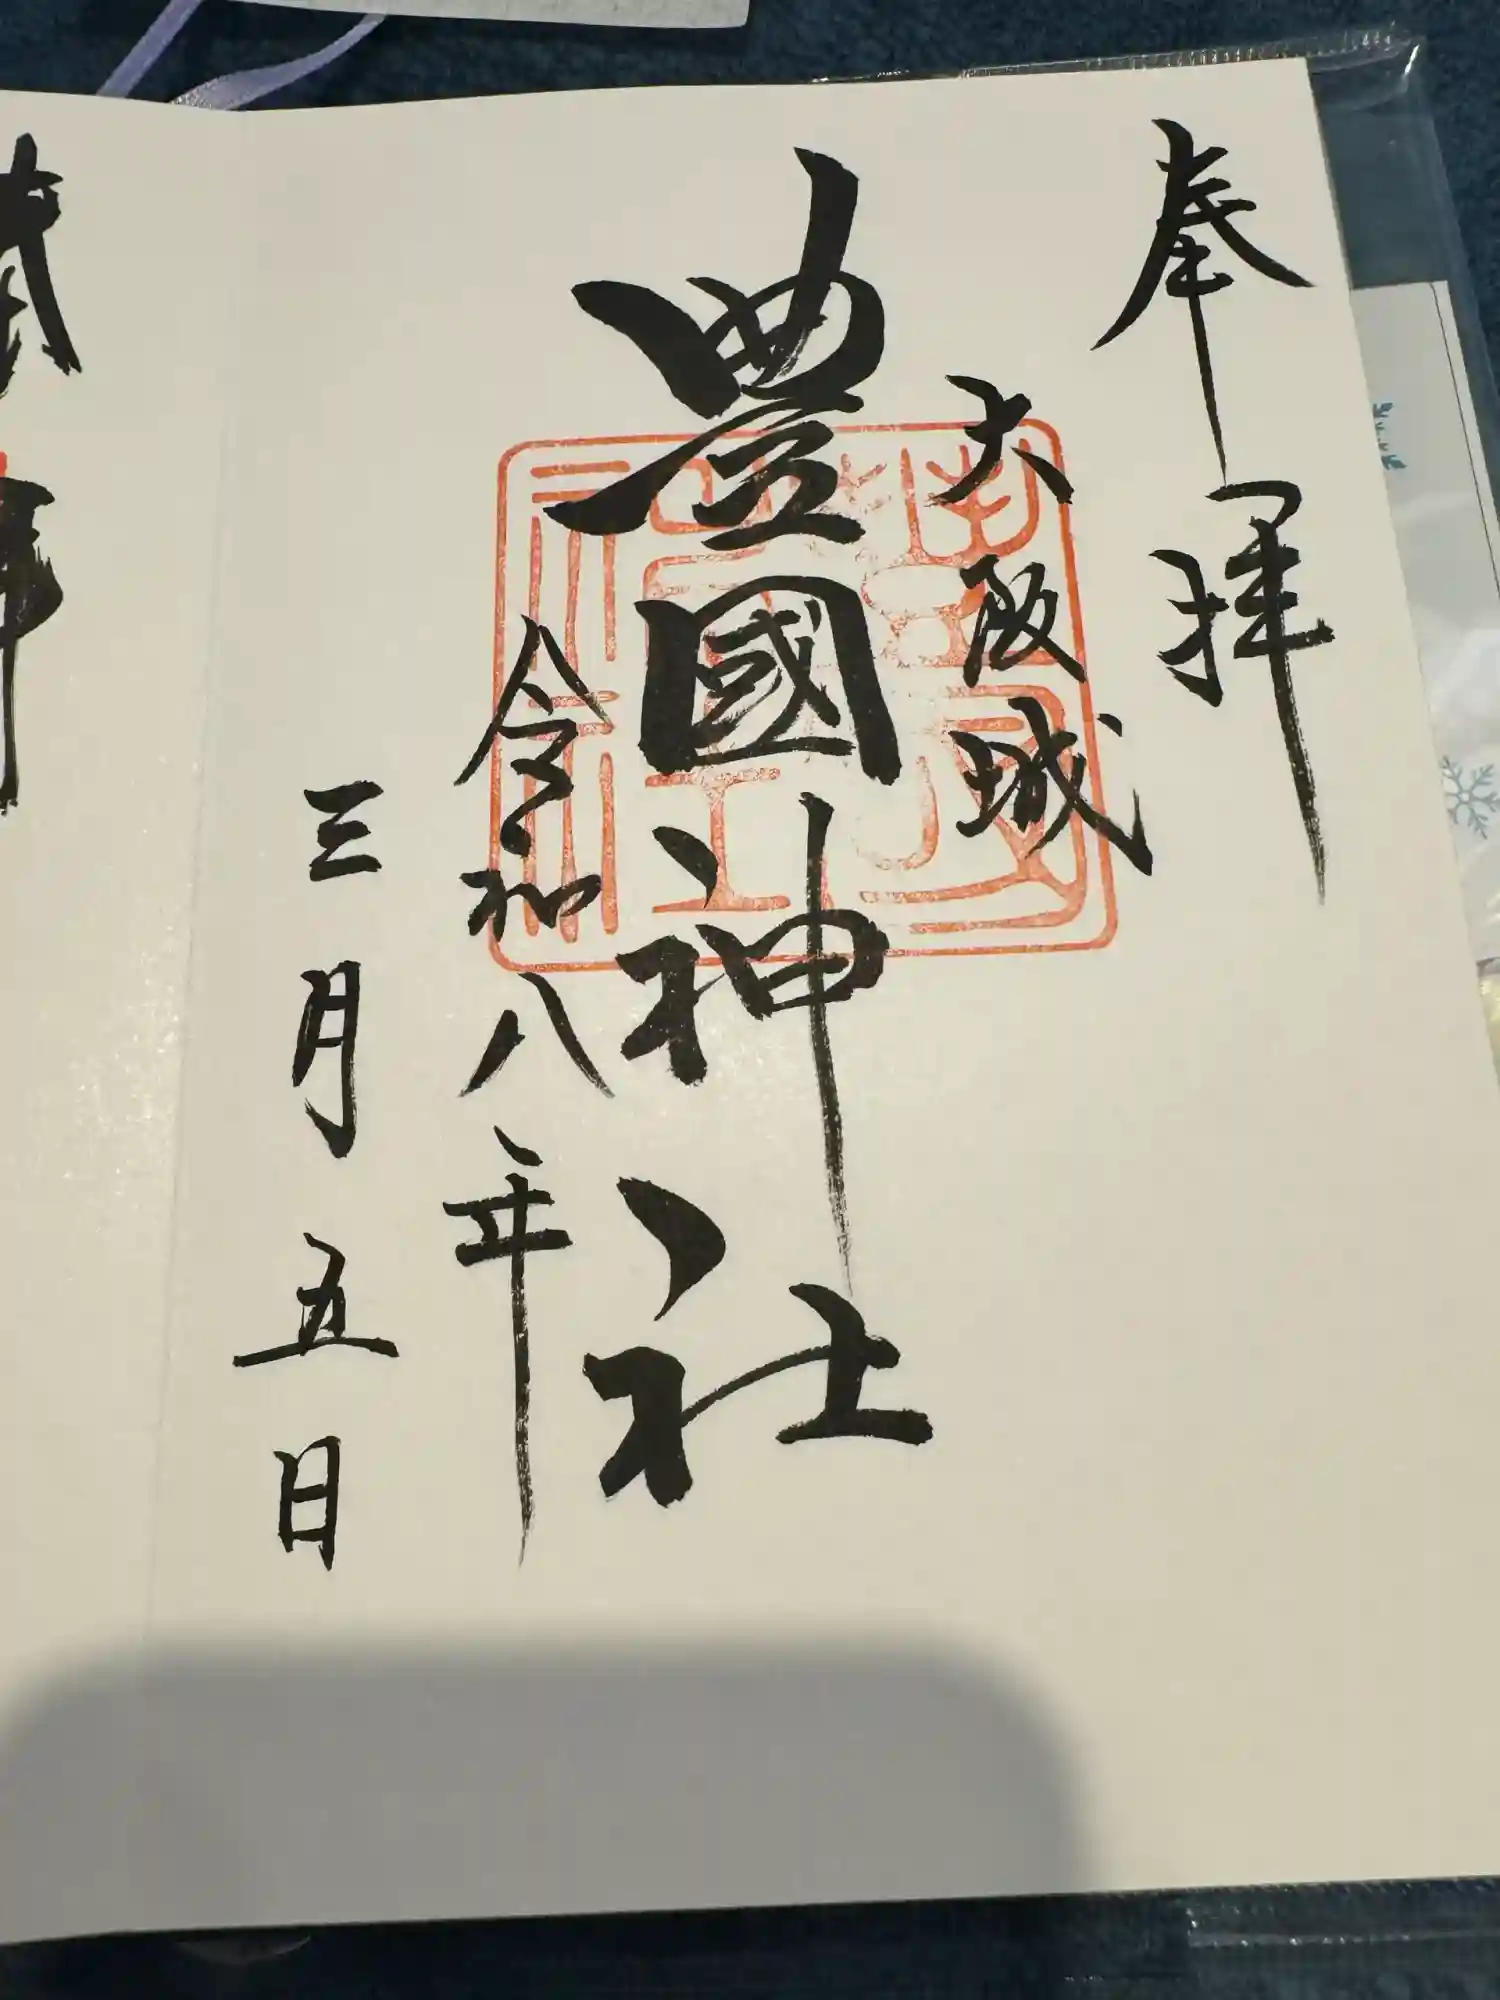 奉拝
大阪城
豊國神社
令和八年
三月五日
奉拝